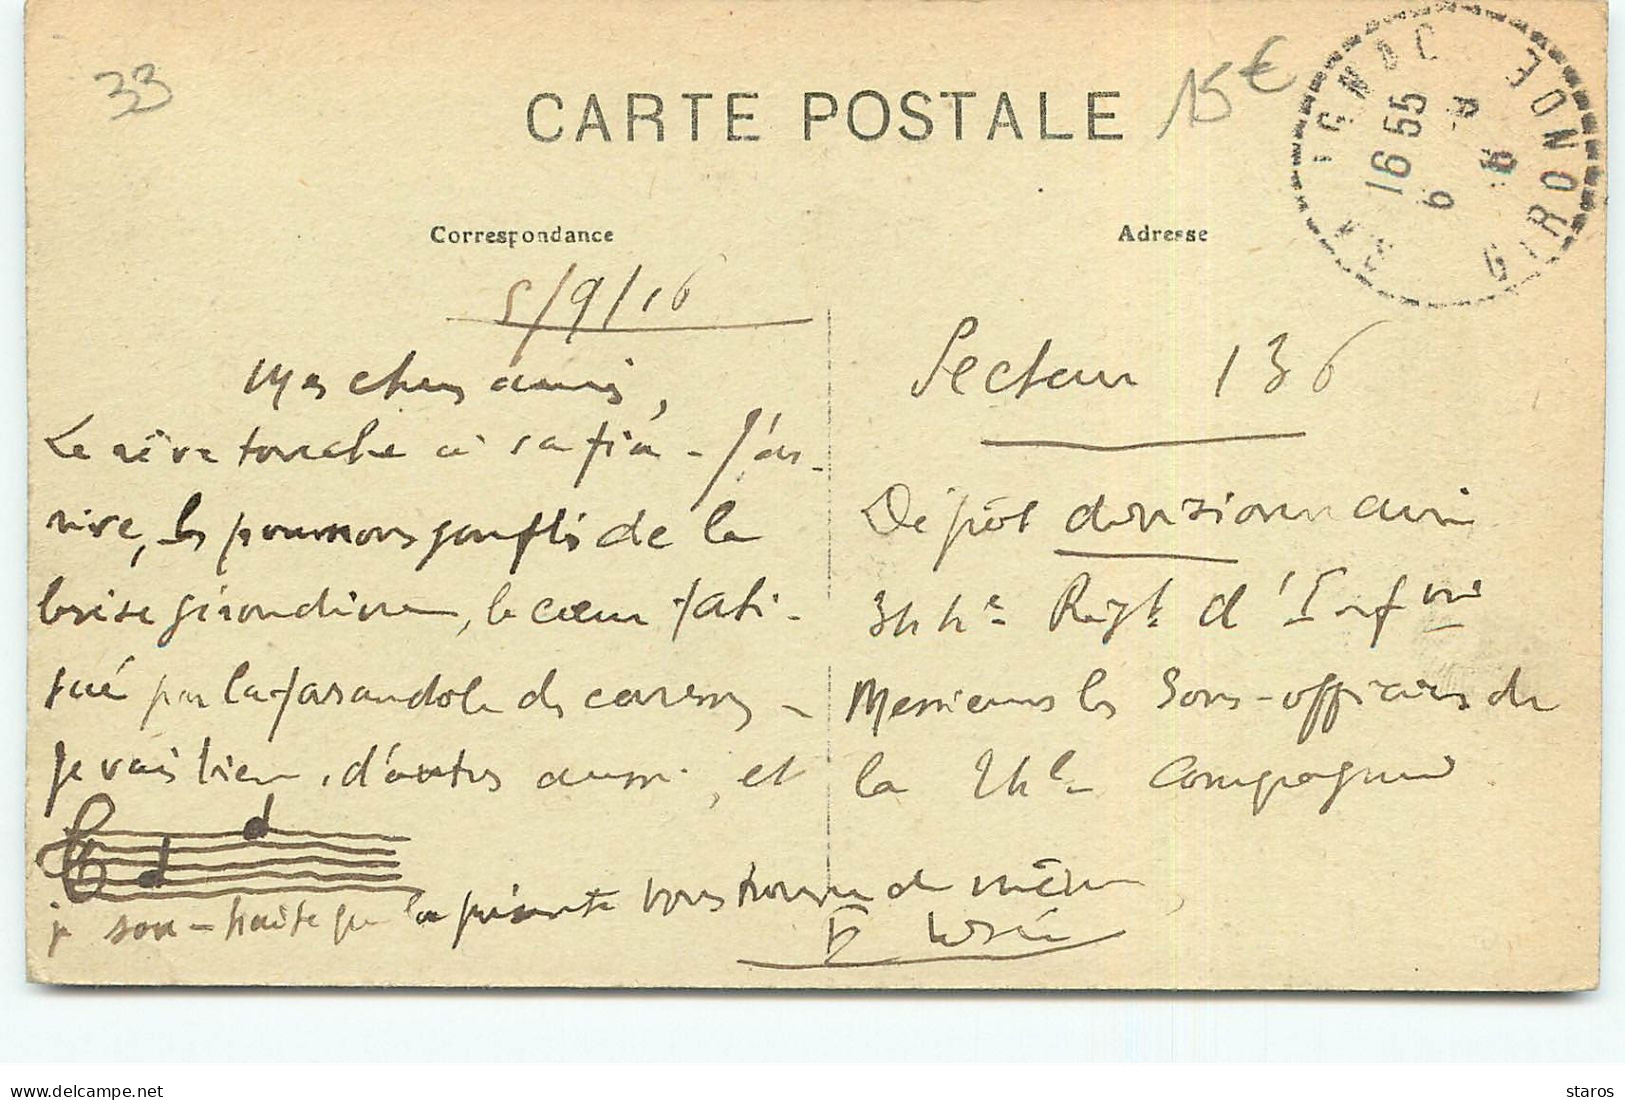 33
CARTE POSTALE
15€
GIRONDE
16 55
6 - 9
Correspondance
Adresse
5/9/16
Mes chers amis,
Le rêve touche à sa fin - J'ar-
rive, les poumons gonflés de la
brise girondine, le cœur fati-
gué par la farandole des caresses -
Je vais bien, d'autres aussi, et
je sou-haite que la présente vous trouve de même
Secteur 136
Dépôt divisionnaire
344e Regt d'Infrie
Messieurs les Sous-officiers de
la 24e Compagnie
staros